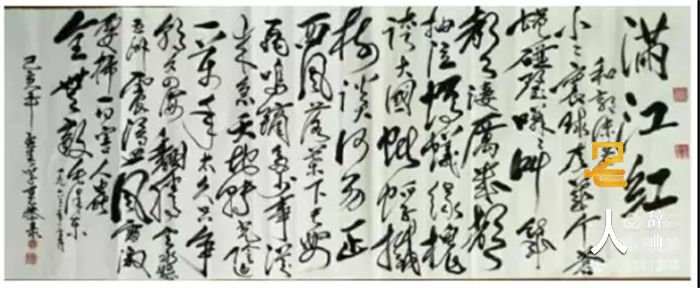 满江红
和郭沫若
小小寰球有几个苍
蝇碰壁嗡嗡叫几声
凄厉几声
抽泣蚂蚁缘槐
夸大国蚍蜉撼
树谈何易正
西风落叶下长安
飞鸣镝多少事从
来急天地转光阴迫
一万年太久只争
朝夕四海翻腾云水怒
五洲震荡风雷激
要扫 一切害人虫
全无敌 毛泽东
一九六三年
己亥年
人